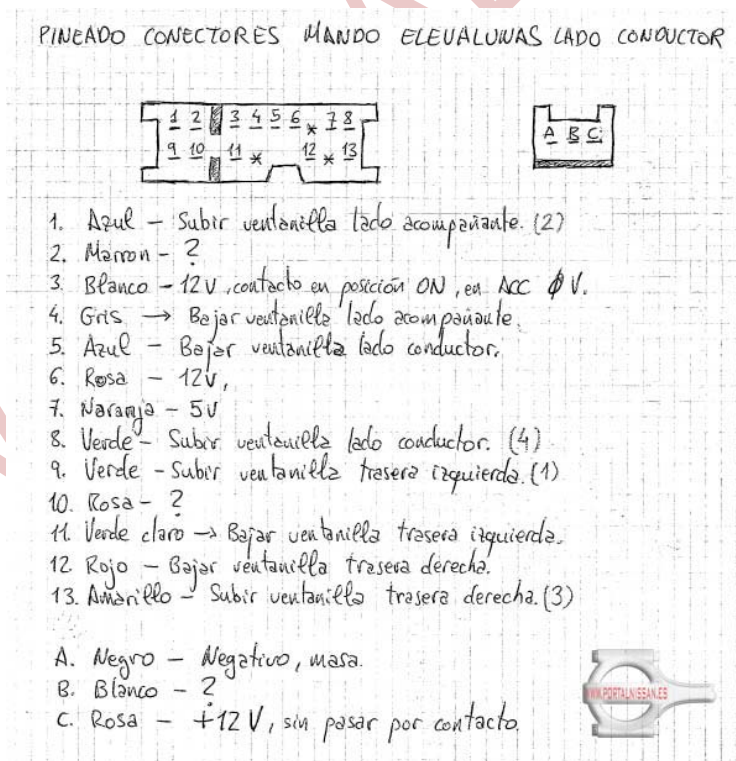 PINEADO CONECTORES MANDO ELEVALUNAS LADO CONDUCTOR
1 2 3 4 5 6 * 7 8
9 10 11 * 12 * 13
A B C
1. Azul - Subir ventanilla lado acompañante. (2)
2. Marron - ?
3. Blanco - 12V, contacto en posición ON, en ACC ϕ V.
4. Gris → Bajar ventanilla lado acompañante.
5. Azul - Bajar ventanilla lado conductor.
6. Rosa - 12V,
7. Naranja - 5V
8. Verde - Subir ventanilla lado conductor. (4)
9. Verde - Subir ventanilla trasera izquierda. (1)
10. Rosa - ?
11. Verde claro → Bajar ventanilla trasera izquierda.
12 Rojo - Bajar ventanilla trasera derecha.
13. Amarillo - Subir ventanilla trasera derecha. (3)
A. Negro - Negativo, masa.
B. Blanco - ?
C. Rosa - +12 V, sin pasar por contacto.
WWW.PORTALNISSAN.ES